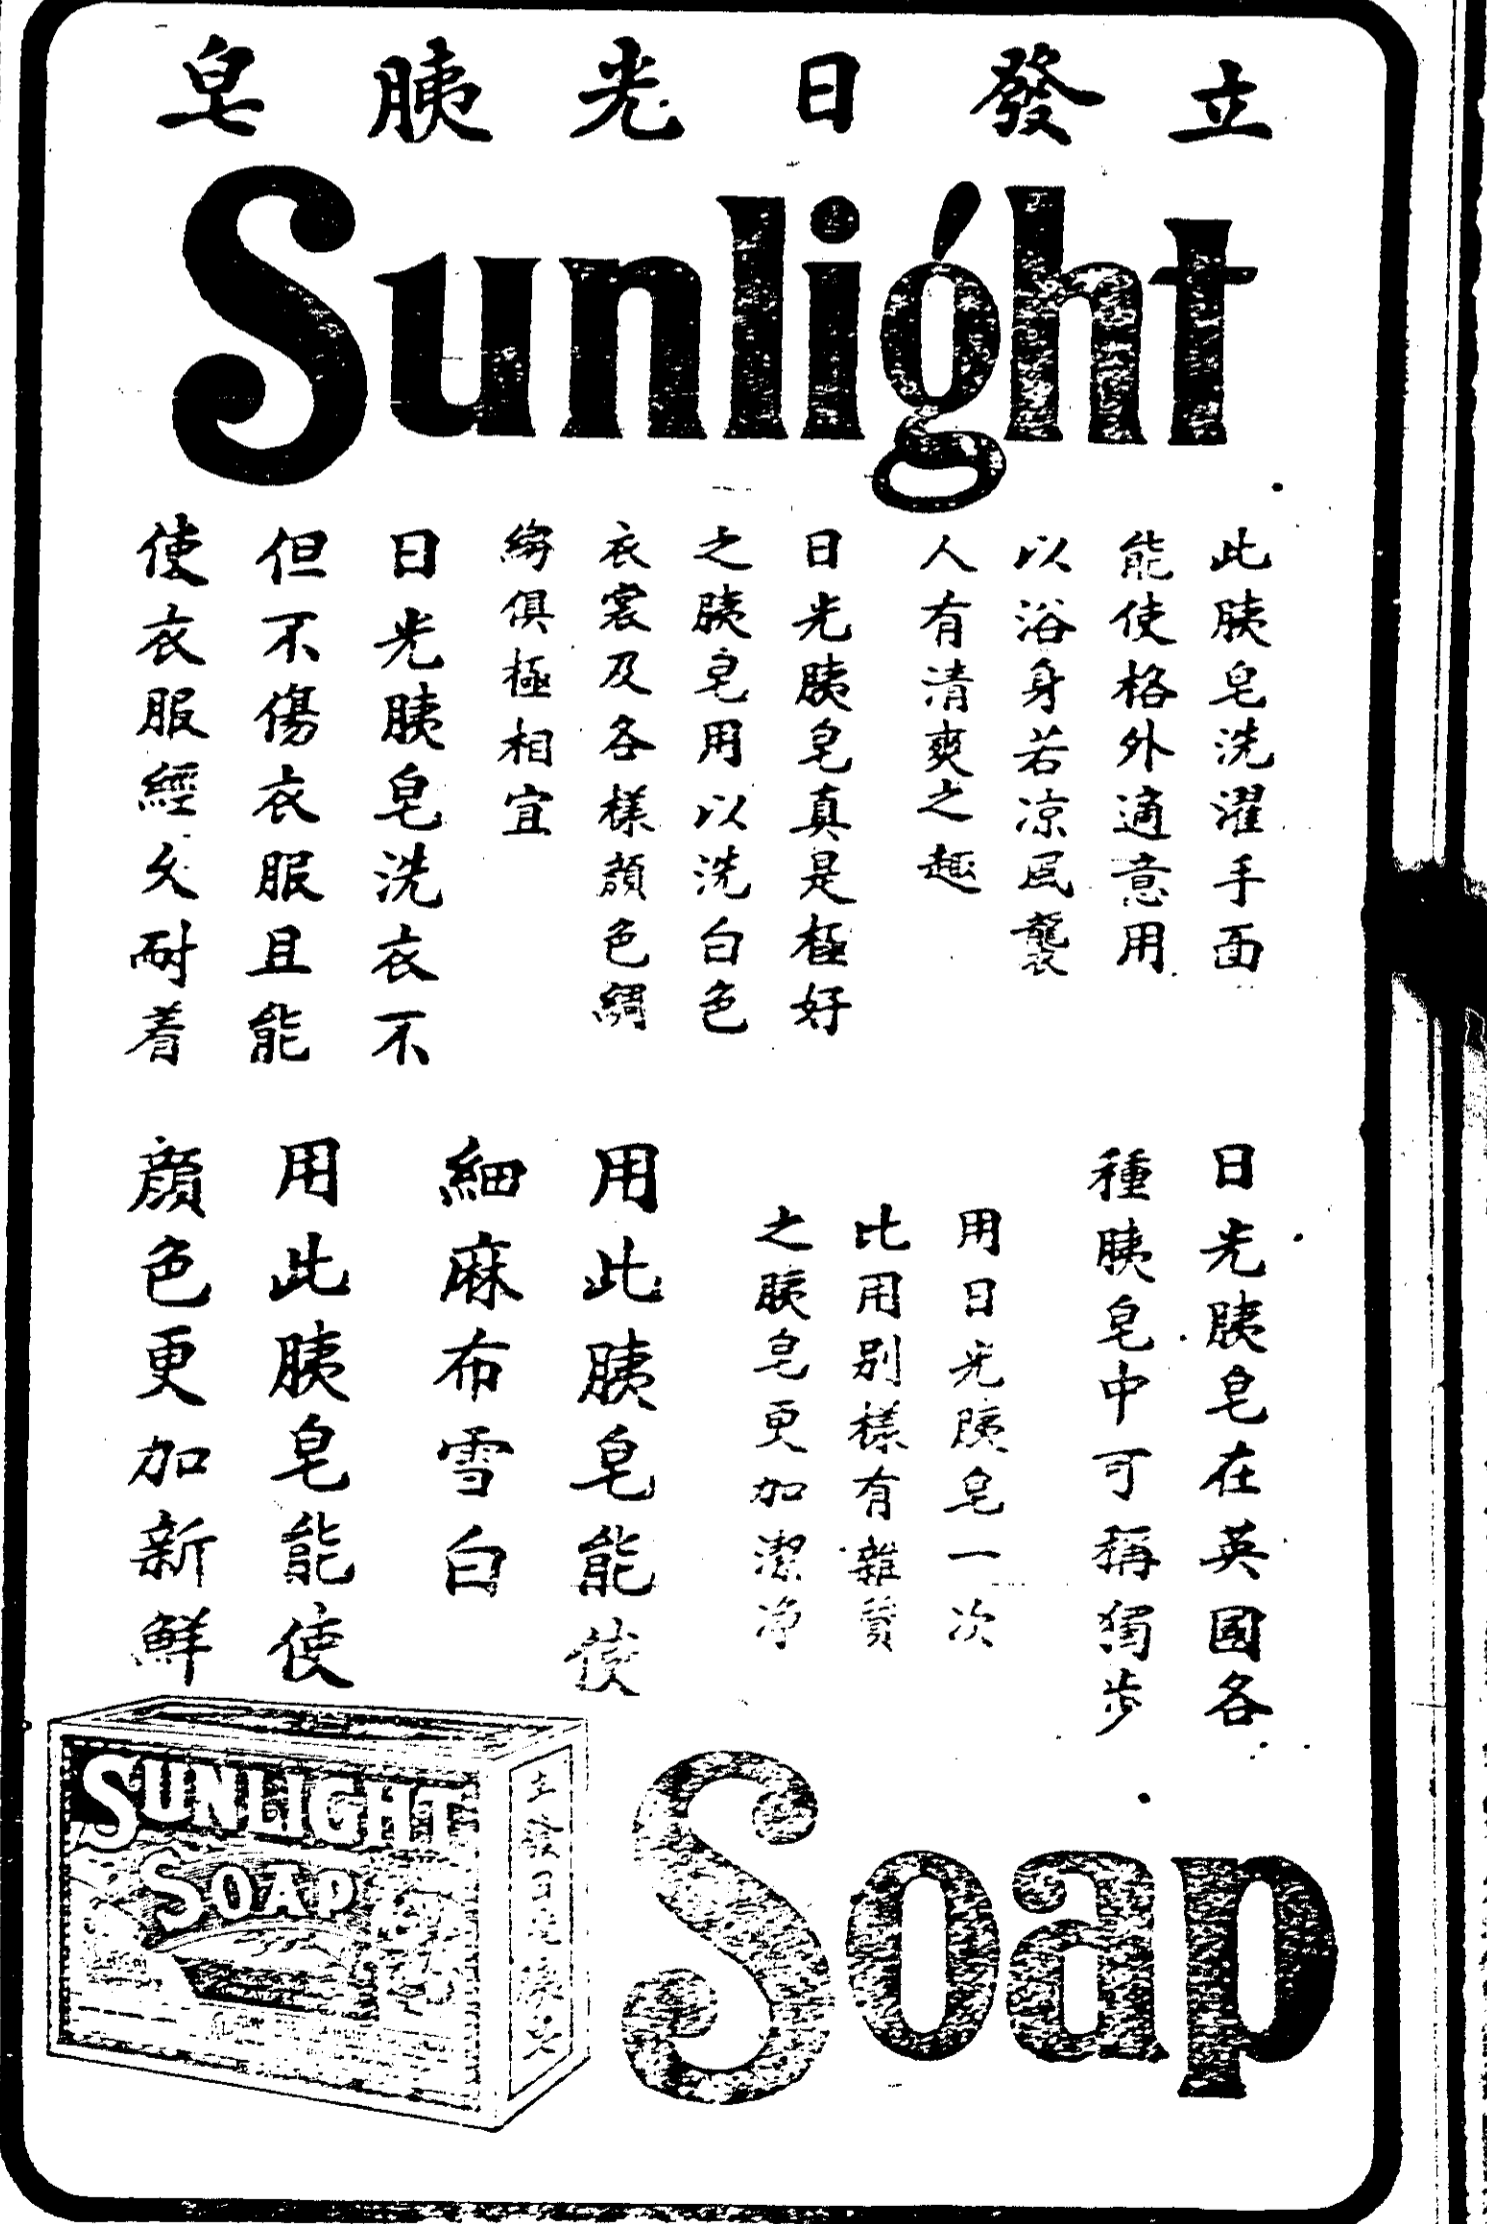 立發日光胰皂
Sunlight
此胰皂洗濯手面
能使格外適意用
以浴身若凉風襲
人有清爽之趣
日光胰皂真是極好
之胰皂用以洗白色
衣裳及各樣顏色綢
縐俱極相宜
日光胰皂洗衣不
但不傷衣服且能
使衣服經久耐着
日光胰皂在英國各
種胰皂中可稱獨步
用日光胰皂一次
比用別樣有雜質
之胰皂更加潔净
用此胰皂能使
細麻布雪白
用此胰皂能使
顏色更加新鮮
SUNLIGHT
SOAP
立發日光胰皂
Soap